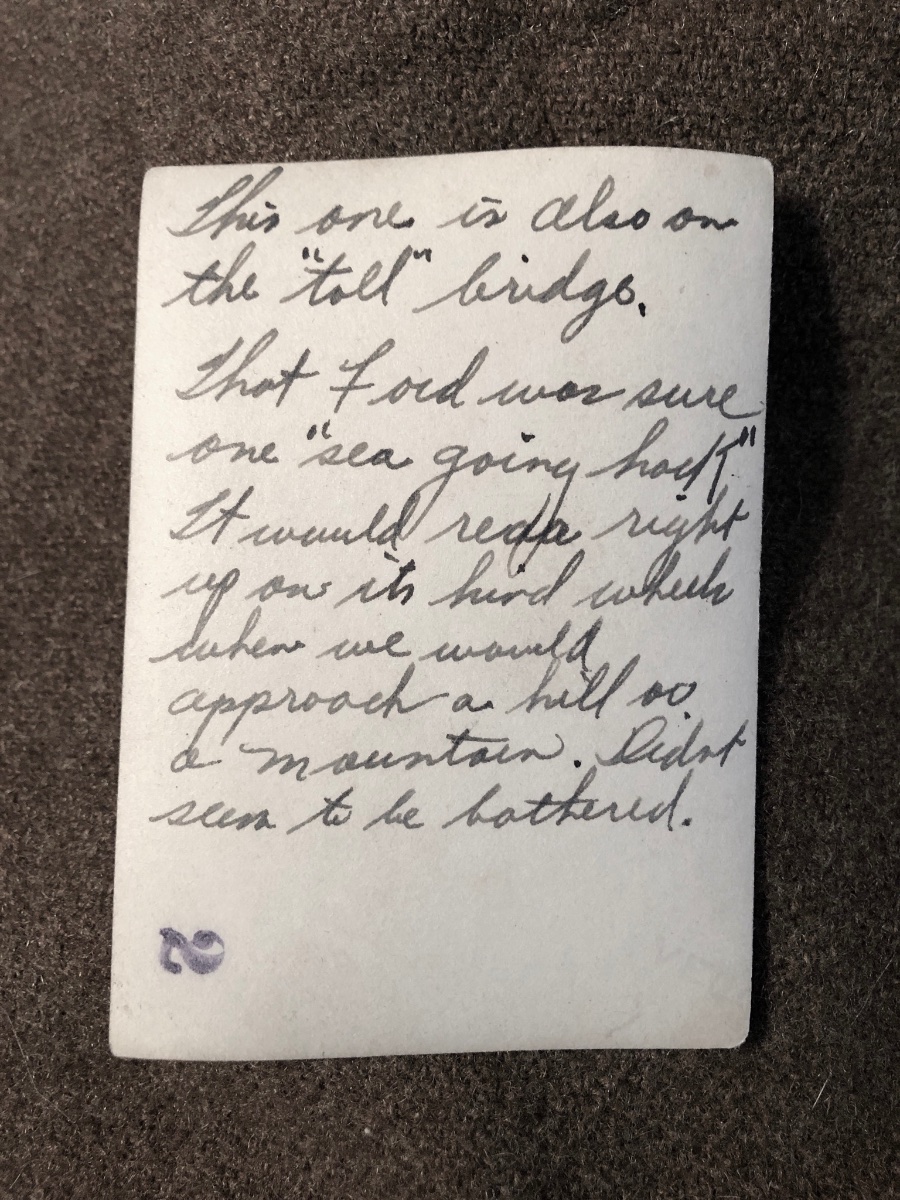 This one is also on
the "toll" bridge.
That Ford was sure
one "sea going hack"
It would rear right
up on its hind wheels
when we would
approach a hill or
a mountain. Didnt
seem to be bothered.
2